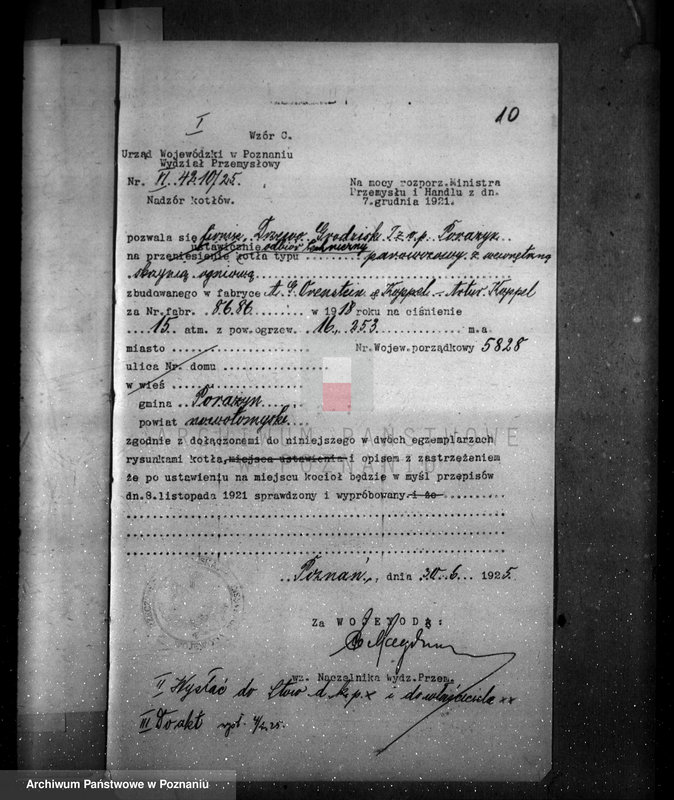 10
I
Wzór C.
Urząd Wojewódzki w Poznaniu
Wydział Przemysłowy
Nr. VI. 4210/25.
Nadzór kotłów.
Na mocy rozporz. Ministra
Przemysłu i Handlu z dn.
7. grudnia 1921.
pozwala się firmie Drzewo Grodzisk T.z.o.p. Porażyn
ustawienie odbiór
na przeniesienie kotła typu parowozowy z wewnętrzną
skrzynią ogniową
zbudowanego w fabryce A. G. Orenstein & Koppel - Artur Koppel
za Nr. fabr. 8686 w 1918 roku na ciśnienie
15 atm. z pow. ogrzew. 16,253 m.a
miasto Nr. Wojew. porządkowy 5828
ulica Nr. domu
w wieś
gmina Porażyn
powiat nowotomyski
zgodnie z dołączonemi do niniejszego w dwóch egzemplarzach
rysunkami kotła, miejsca ustawienia i opisem z zastrzeżeniem
że po ustawieniu na miejscu kocioł będzie w myśl przepisów
dn. 8. listopada 1921 sprawdzony i wypróbowany i że
ARCHIWUM PAŃSTWOWE
W POZNANIU
Poznań, dnia 30. 6. 1925.
Za WOJEWODĘ:
wz. Naczelnika Wydz. Przem.
II Wysłać do Stow. d.k.p. x i do właściciela xx
III Do akt
Archiwum Państwowe w Poznaniu